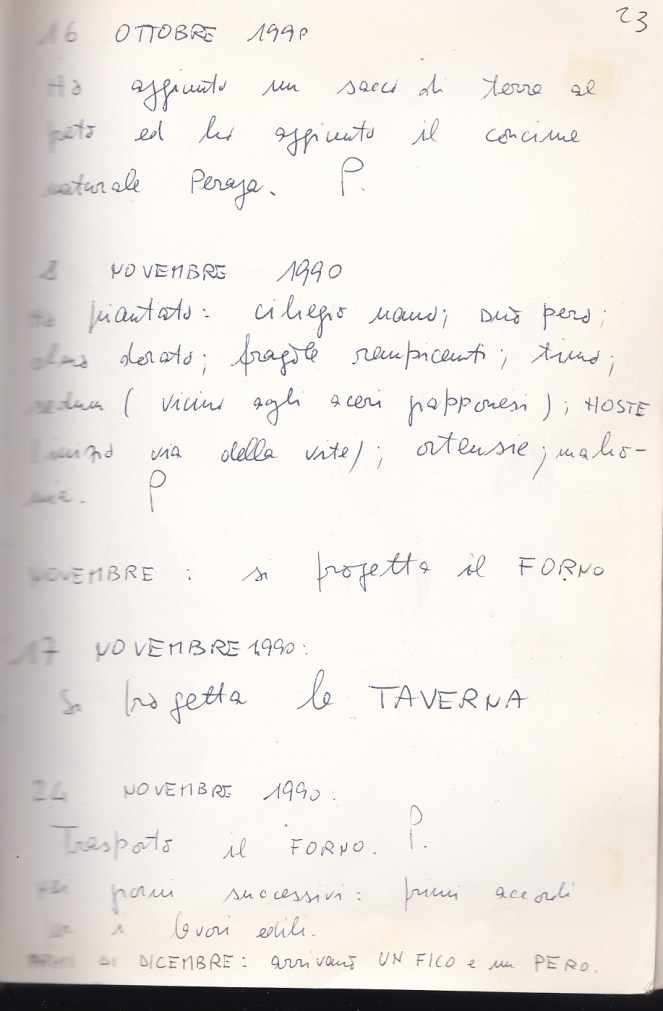 23
16 OTTOBRE 1990
Ho aggiunto un sacco di terra al
prato ed ho aggiunto il concime
naturale
P.
8 NOVEMBRE 1990
Ho piantato: ciliegio nano; pero;
dorato; fragole rampicanti; timo;
sedum (vicino agli aceri giapponesi); HOSTE
via della vite); ortensie; maho-
nie. P
NOVEMBRE : si progetta il FORNO
17 NOVEMBRE 1990:
Si progetta la TAVERNA
24 NOVEMBRE 1990:
Trasporto il FORNO. P.
giorni successivi: primi accordi
per i lavori edili.
PRIMI DI DICEMBRE: arrivano UN FICO e un PERO.